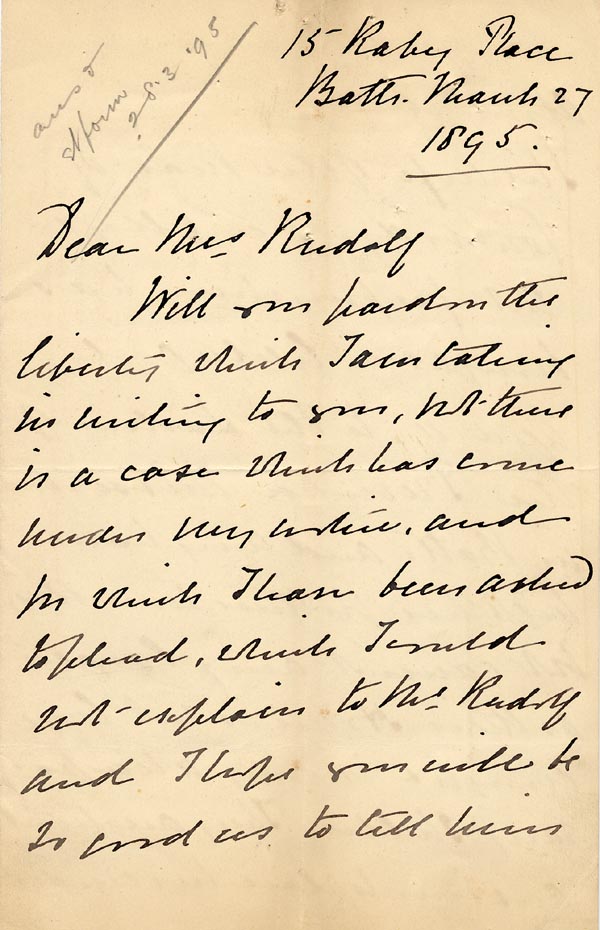 ansd
& form
28.3.'95
15 Raby Place
Bath. March 27
1895.
Dear Mrs Rudolf
Will you pardon the
liberty which I am taking
in writing to you, but there
is a case which has come
under my notice, and
for which I have been asked
to plead, which I could
not explain to Mr Rudolf
and I hope you will be
so good as to tell him